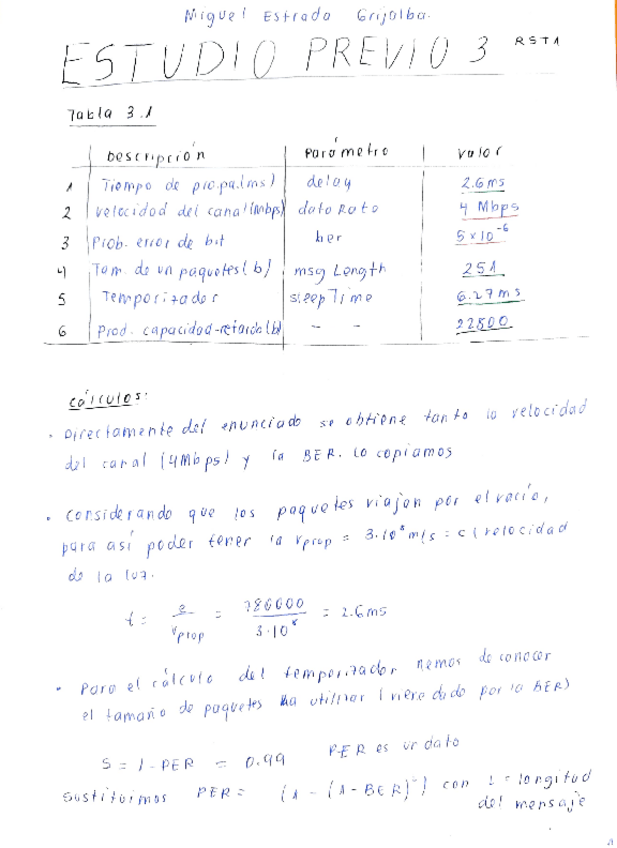 Miguel Estrada Grijalba.
ESTUDIO PREVIO 3 RST1
Tabla 3.1
Descripción Parámetro Valor
1 Tiempo de propa.(ms) delay 2.6ms
2 Velocidad del canal (Mbps) dataRate 4 Mbps
3 Prob. error de bit ber 5×10⁻⁶
4 Tam. de un paquetes (b) msg Length 251
5 Temporizador sleepTime 6.27ms
6 Prod. capacidad-retardo (b) - - 22800
Cálculos:
• Directamente del enunciado se obtiene tanto la velocidad
del canal (4Mbps) y la BER. Lo copiamos
• Considerando que los paquetes viajan por el vacío,
para así poder tener la Vprop = 3·10⁸ m/s = c (velocidad
de la luz.
t = e/Vprop = 786000/3·10⁸ = 2.6ms
• Para el cálculo del temporizador hemos de conocer
el tamaño de paquetes a utilizar (viene dado por la BER)
S = 1 - PER = 0.99 PER es un dato
Sustituimos PER = (1 - (1 - BER)ᴸ) con L = longitud
del mensaje